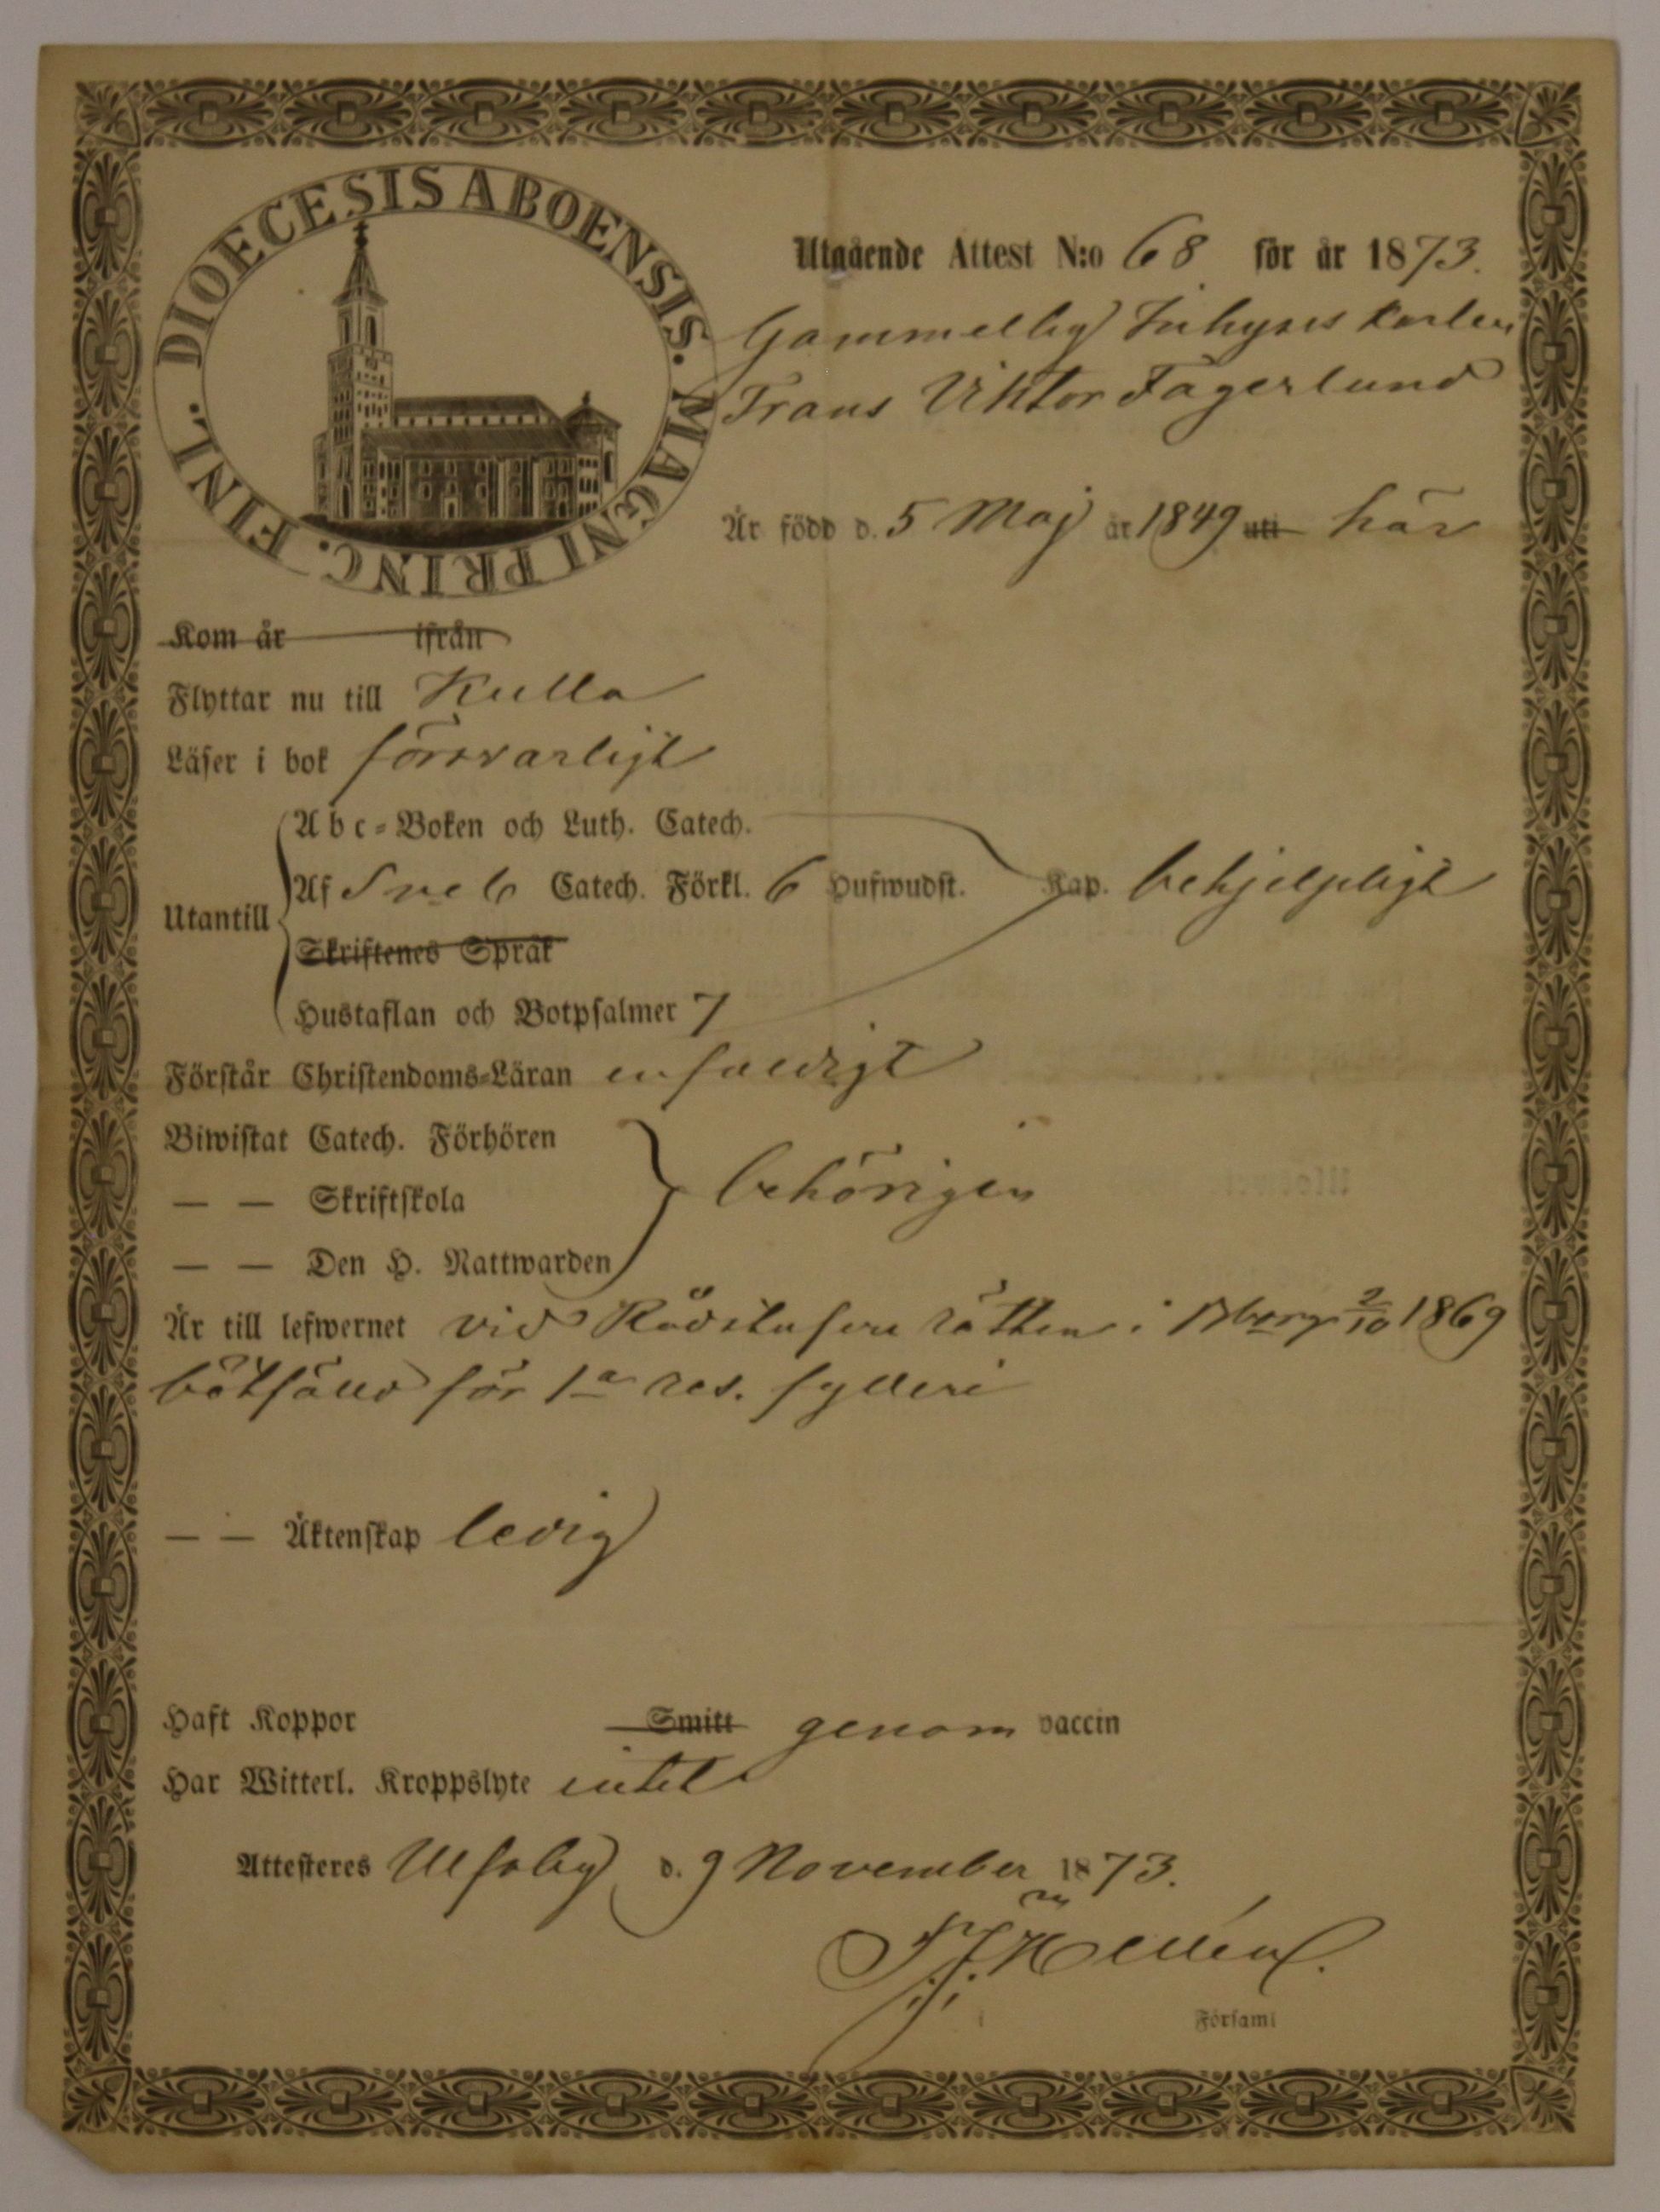 DIOECESIS ABOENSIS. MAGNI PRINC. FINL.
Utgående Attest N:o 68 för år 1873.
Gammelby Inhyses karlen
Frans Viktor Fagerlund
Är född d. 5 Maj år 1849 uti här
Kom år ifrån
Flyttar nu till Kulla
Läser i bok försvarligt
Abc-Boken och Luth. Catech.
Af Sveb Catech. Förkl. 6 Hufwudst. Kap. behjelpligt
Utantill
Skriftenes Språk
Hustaflan och Botpsalmer 7
Förstår Christendoms-Läran enfaldigt
Biwistat Catech. Förhören
— — Skriftskola behörigen
— — Den H. Nattwarden
Är till lefwernet vid Rådstufvu rätten i Bborg 2/10 1869
bötfälld för 1a res. fylleri
— — Äktenskap ledig
Haft Koppor Smitt genom vaccin
Har Witterl. Kroppslyte intet
Attesteres Ulfsby d. 9 November 1873.
Hellén.
Församl